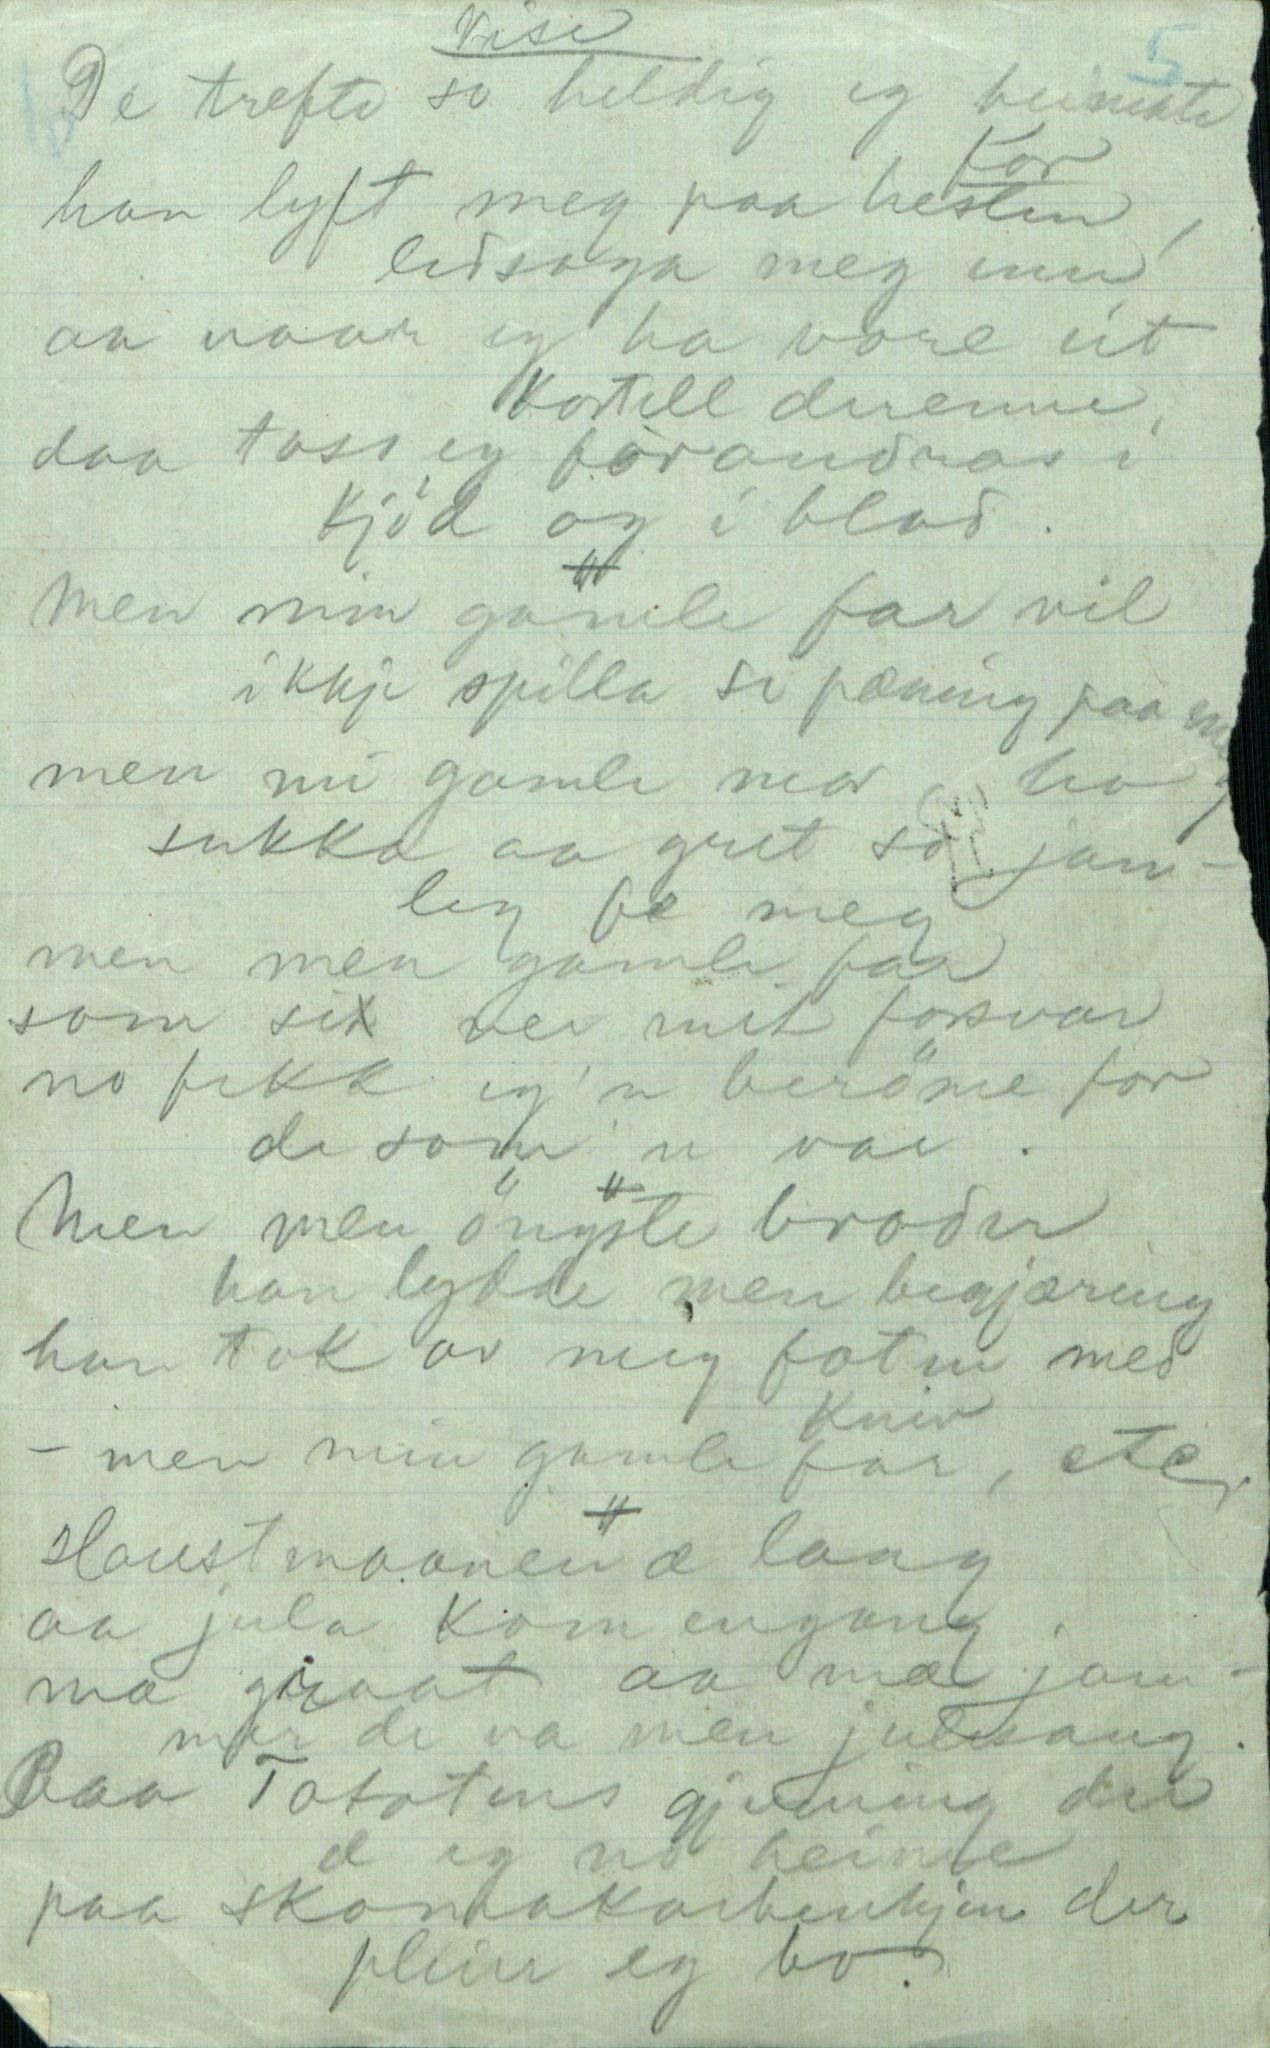 Vise
5
De trefte so heldig eg heimatte
for
han lyft meg paa hesten,
ledsaga meg inn
aa naar eg ha vore út
bortell duenne,
daa toss eg forandras i
kjöd og i blod.
Men min gamle far vil
ikkje spilla si pæning paa meg
men mi gamle mor, ho
sukka aa gret so jam-
leg fe meg
men men gamle far
som sit ve mit forsvar
no fekk eg'n beröme for
de som'n var.
Men men öngste broder
han lydde men begjæring
han tok av meg foten med
kniv
- men min gamle far, etc.
Haustmaanen æ lang
aa jula kom engang.
mæ graat aa mæ jam-
mer de va men julesang.
Paa Totatens gjening der
æ eg no heime
paa skomakarbenkjen der
pleier eg bo.